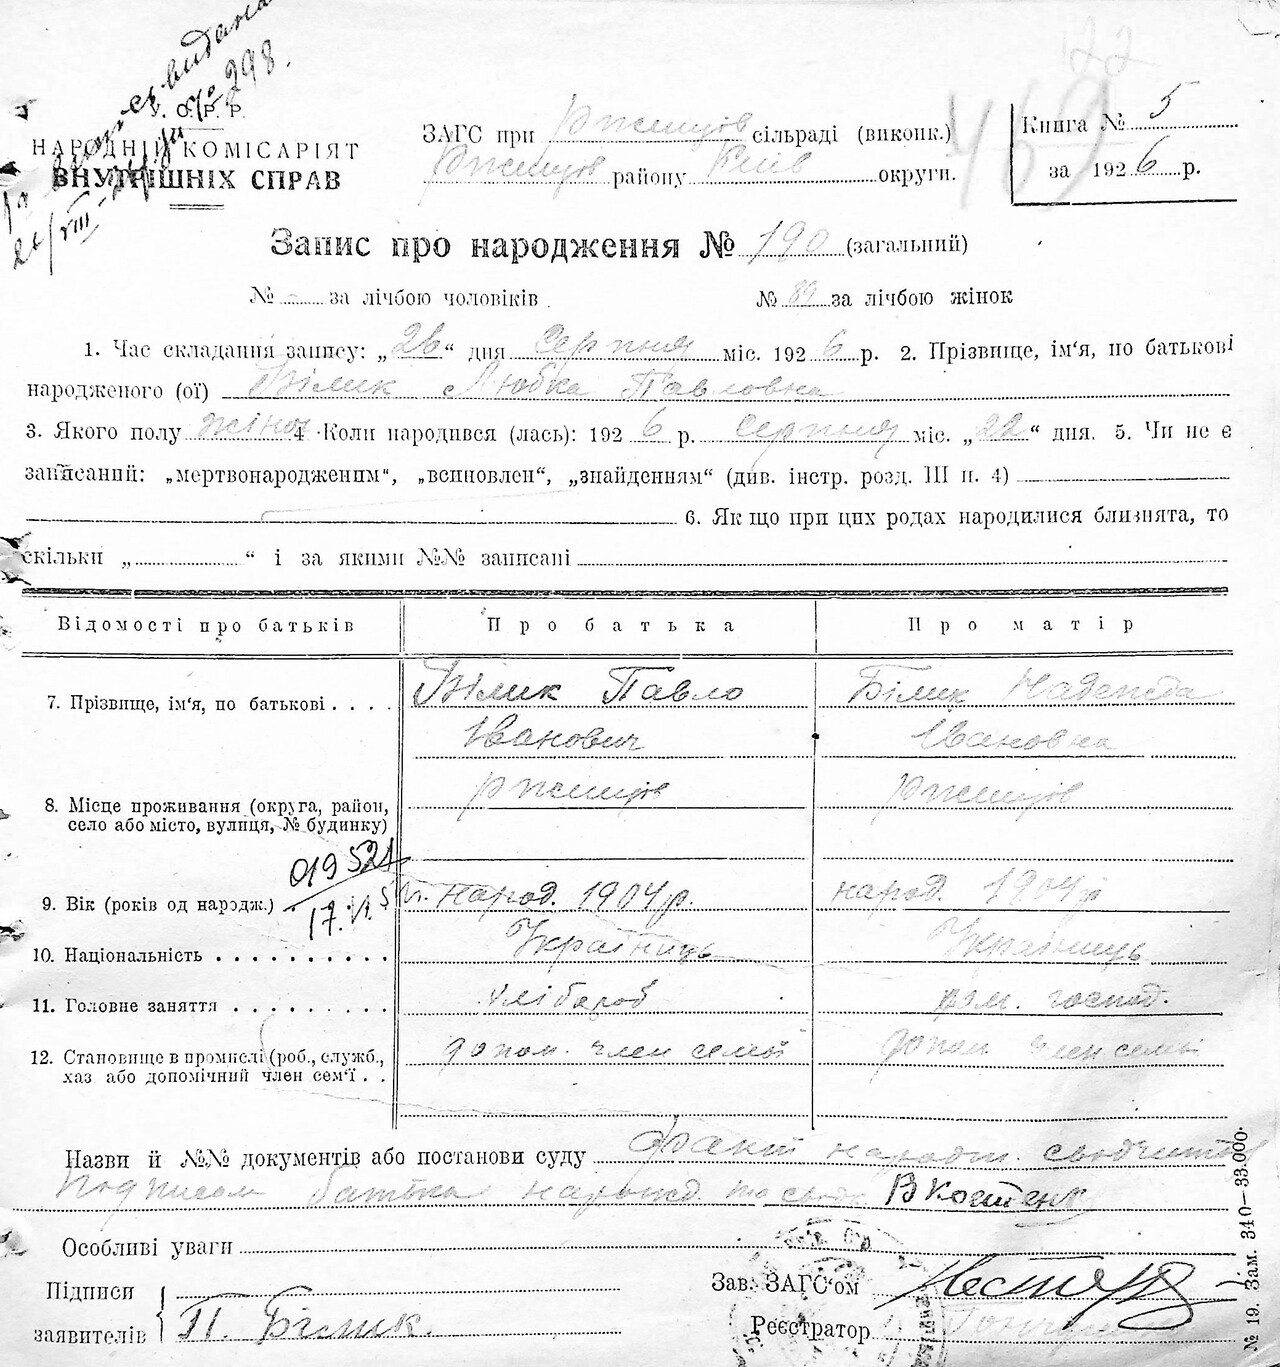 видана
№ 298.
У. С. Р. Р.
НАРОДНІЙ КОМІСАРІЯТ
ВНУТРІШНІХ СПРАВ
122
469
ЗАГС при Ржищів сільраді (виконк.)
Ржищів району Київ округи.
Книга № 5
за 1926 р.
Запис про народження № 190 (загальний)
№ - за лічбою чоловіків
№ 89 за лічбою жінок
1. Час складання запису: „26“ дня Серпня міс. 1926 р. 2. Прізвище, ім‘я, по батькові
народженого (ої) Білик Любка Павловна
3. Якого полу жіноч 4 Коли народився (лась): 1926 р. серпня міс. „22“ дня. 5. Чи не є
записаний: „мертвонародженим“, „всиновлен“, „знайденням“ (див. інстр. розд. III п. 4)
6. Як що при цих родах народилися близнята, то
скільки „ “ і за якими №№ записані
Відомості про батьків Про батька Про матір
7. Прізвище, ім‘я, по батькові . . . . Білик Павло Білик Надежда
Іванович Івановна
8. Місце проживання (округа, район, Ржищів Ржищів
село або місто, вулиця, № будинку)
019521
9. Вік (років од народж.) . народ. 1904 р. народ. 1904 р
17.VI.5
10. Національність . . . . . . . . . . Українець Українець
11. Головне заняття . . . . . . . . . хлібароб дом. господ.
12. Становище в промислі (роб., служб., допом. член семьї допом. член семьї
хаз або допомічний член сем‘ї . .
Назви й №№ документів або постанови суду Факт народж.
Подписом батька народжд. В Костенк
Особливі уваги
Підписи Зав. ЗАГС‘ом
заявителів П. Білик. Реєстратор
№ 19. Зам. 340—33.000.